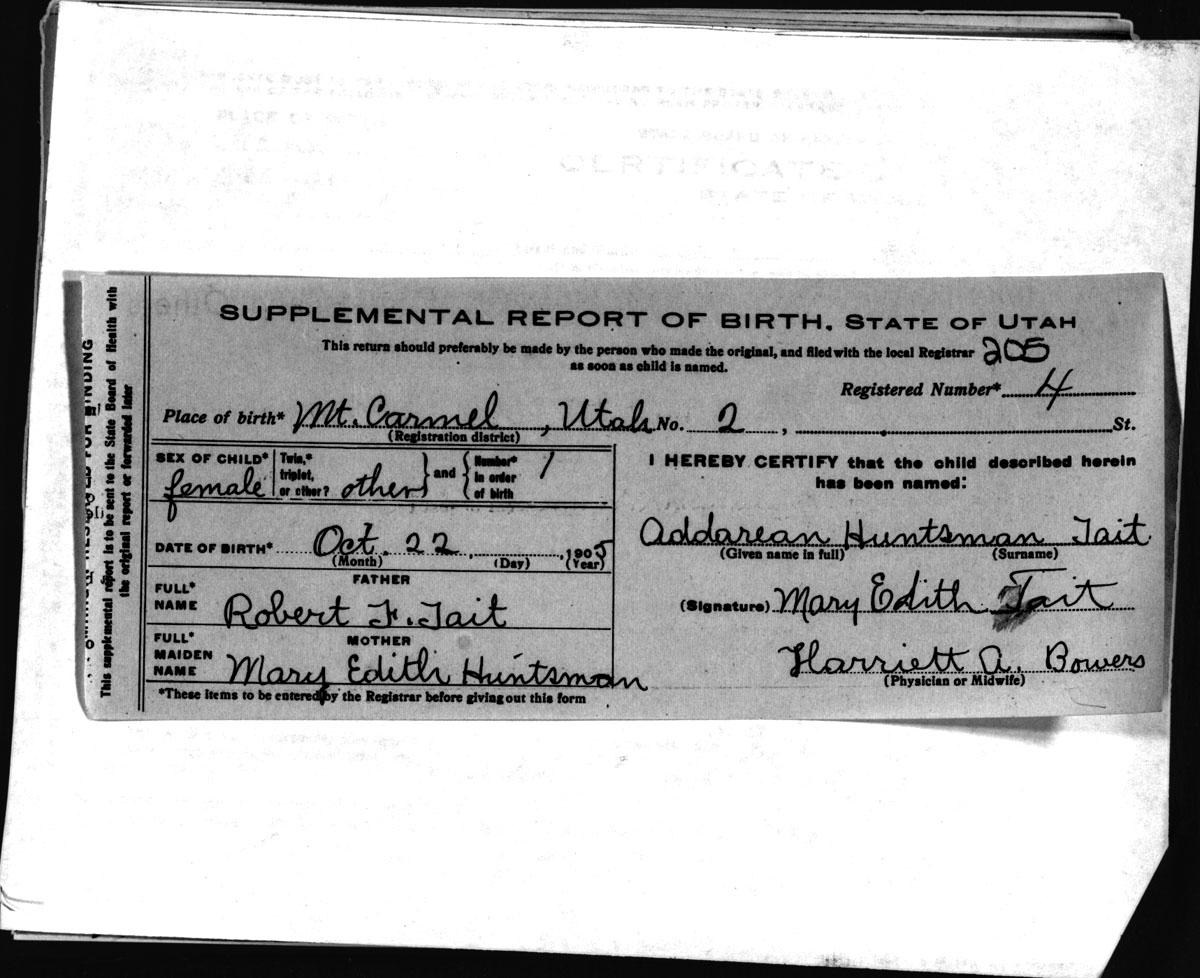 SUPPLEMENTAL REPORT OF BIRTH. STATE OF UTAH
This return should preferably be made by the person who made the original, and filed with the local Registrar 205
as soon as child is named.
Registered Number* 4
Place of birth* Mt. Carmel, Utah No. 2, St.
(Registration district)
SEX OF CHILD* female
Twin,* triplet, or other? other
and
Number* in order of birth 1
DATE OF BIRTH* Oct. 22, 1905
(Month) (Day) (Year)
FATHER
FULL* NAME Robert F. Tait
MOTHER
FULL* MAIDEN NAME Mary Edith Huntsman
*These items to be entered by the Registrar before giving out this form
I HEREBY CERTIFY that the child described herein
has been named:
Addarean Huntsman Tait
(Given name in full) (Surname)
(Signature) Mary Edith Tait
Harriett A. Bowers
(Physician or Midwife)
This supplemental report is to be sent to the State Board of Health with
the original report or forwarded later
CERTIFICATE